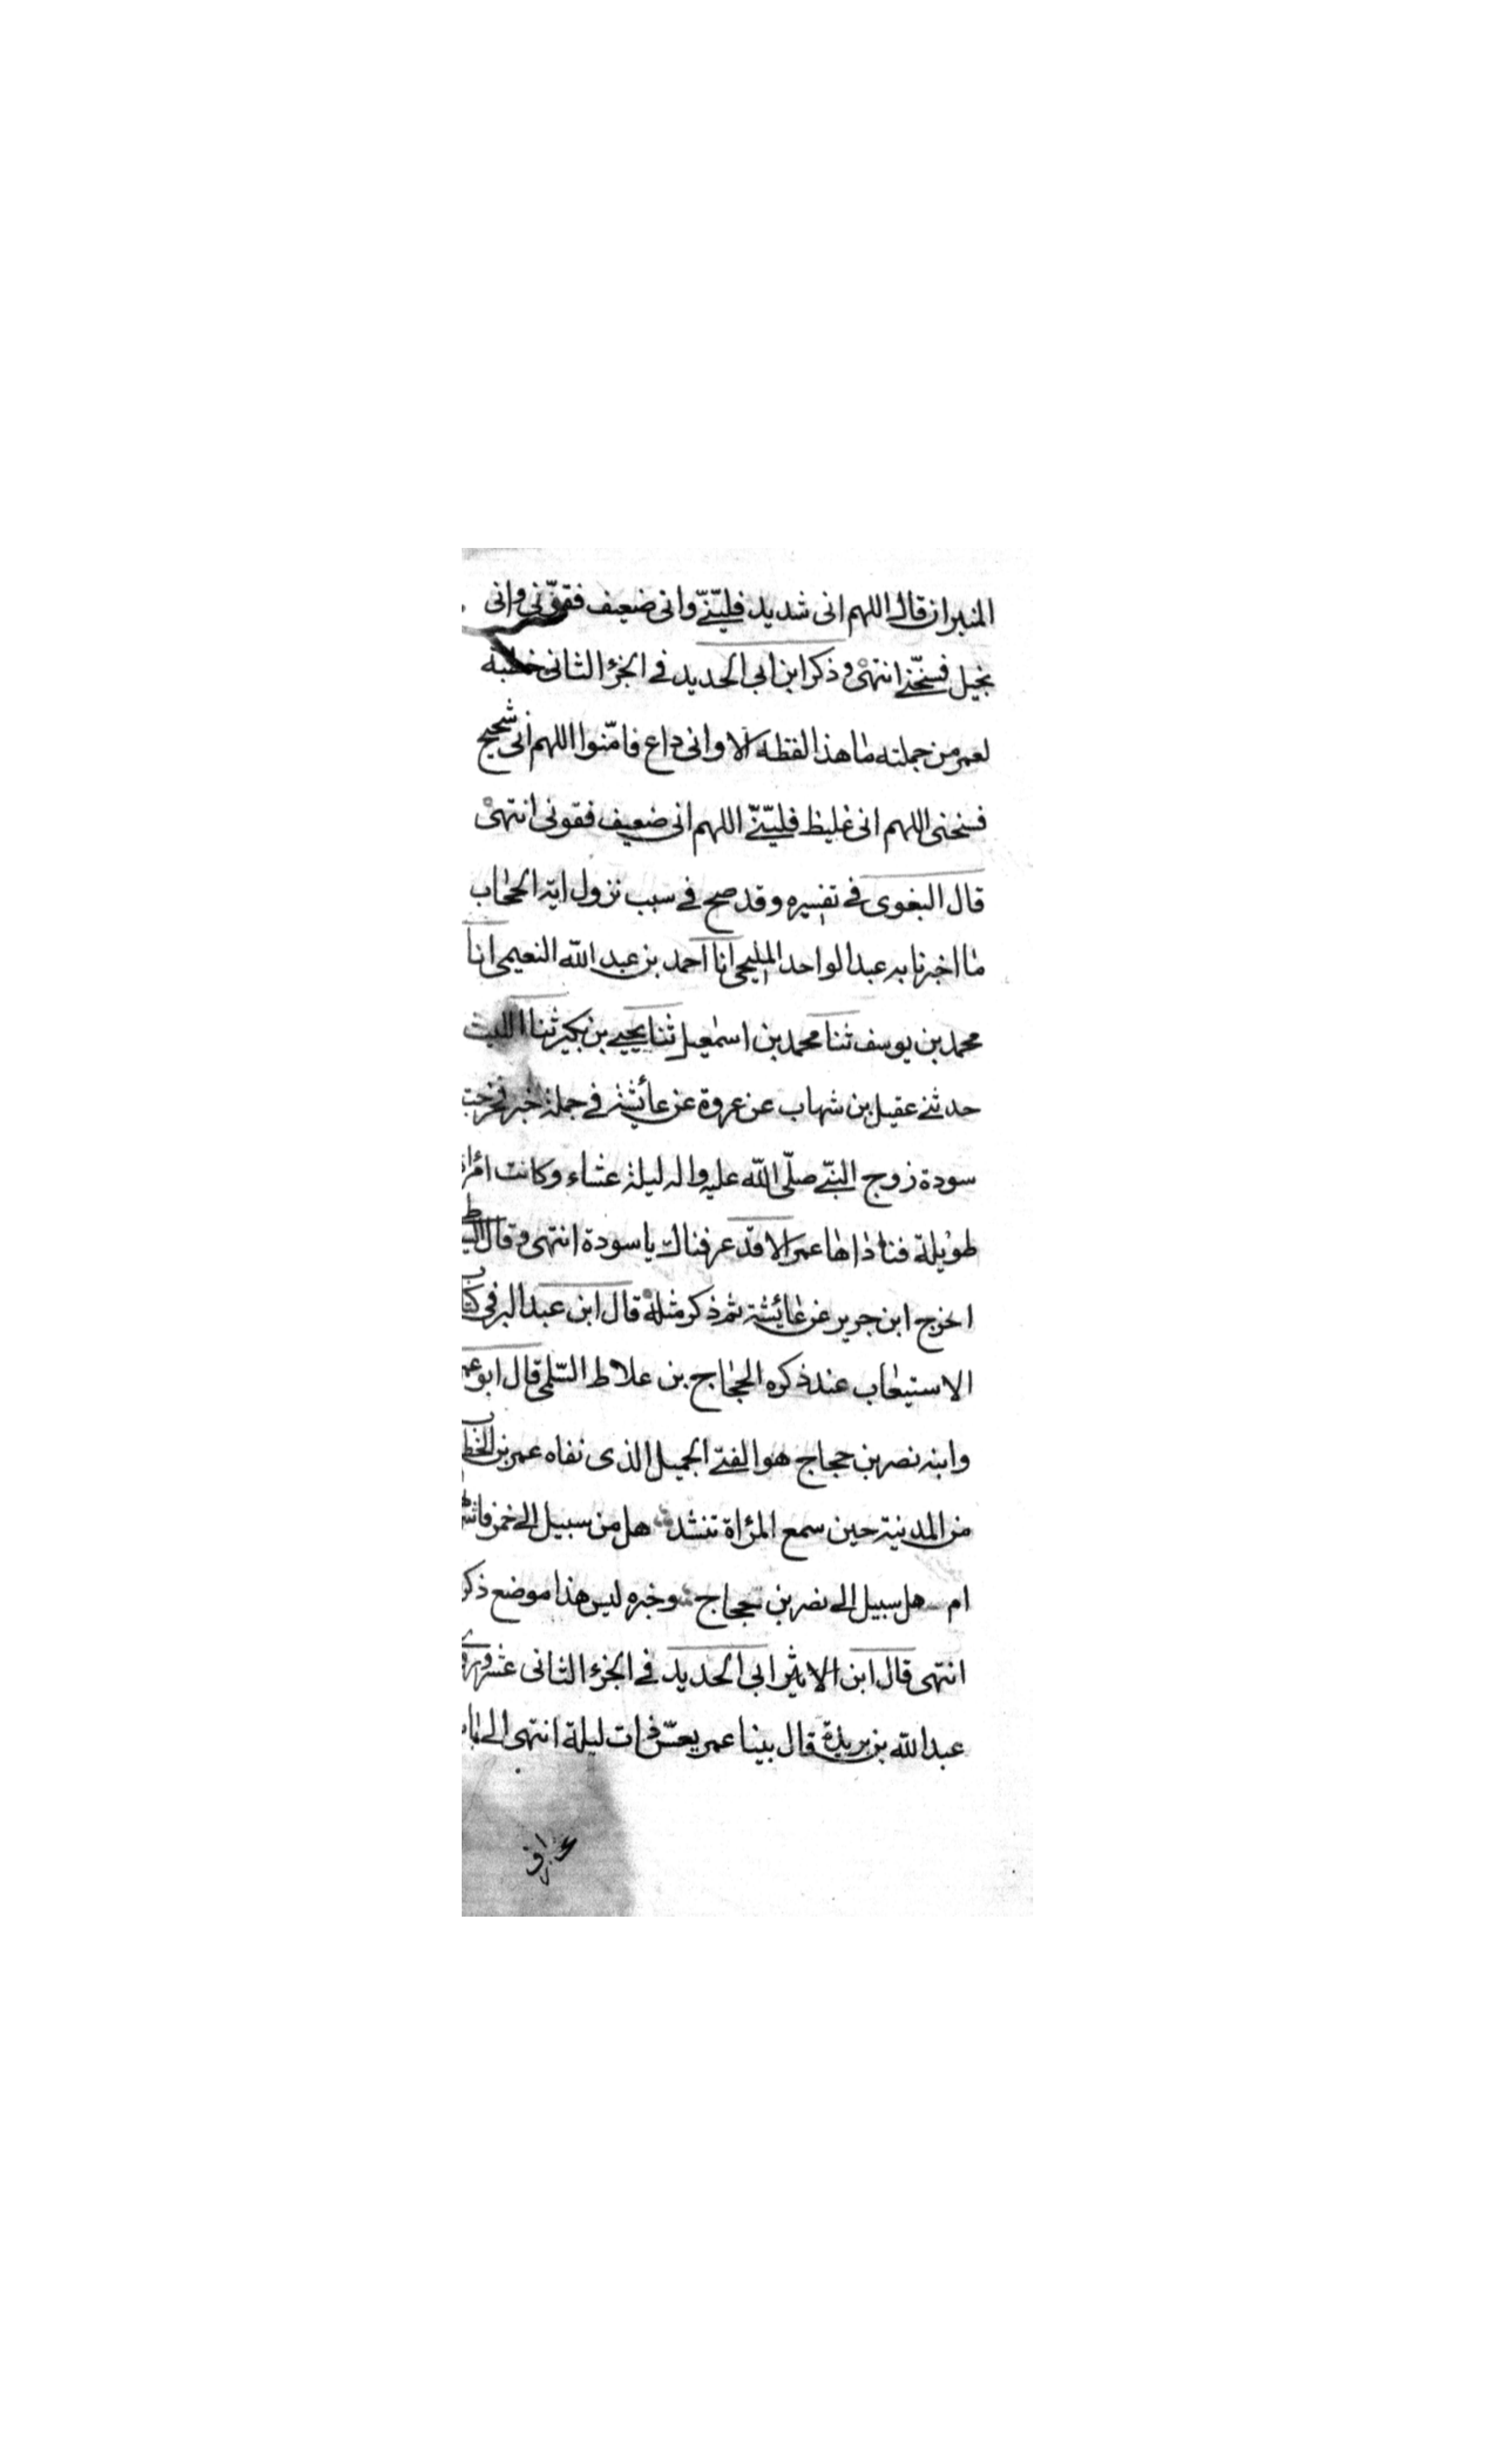 المنبر ان قال اللهم انى شديد فليّنّى وانى ضعيف فقوّنى وانى
بخيل فسخّنى انتهى وذكر ابن ابى الحديد فى الجزء الثانى خطبة
لعمر من جملته ما هذا لفظه الا وانى داع فامّنوا اللهم انى شحيح
فسخنى اللهم انى غليظ فليّنّى اللهم انى ضعيف فقونى انتهى
قال البغوى فى تفسيره وقد صح فى سبب نزول اية الحجاب
ما اخبرنا به عبد الواحد المليحى انا احمد بن عبد الله النعيمى انا
محمد بن يوسف ثنا محمد بن اسمعيل ثنا يحيى بن بكير ثنا الليث
حدثنى عقيل بن شهاب عن عروة عن عائشة فى جملة خبر فخرجت
سودة زوج النبى صلّى الله عليه واله ليلة عشاء وكانت امراة
طويلة فناداها عمر الا قد عرفناك يا سودة انتهى وقال
اخرج ابن جرير عن عائشة ثم ذكر مثله قال ابن عبد البر فى كتاب
الاستيعاب عند ذكره الحجاج بن علاط السّلمى قال ابو عمر
وابنه نصر بن حجاج هو الفتى الجميل الذى نفاه عمر بن الخطاب
من المدينة حين سمع المرأة تنشد هل من سبيل الى خمر فاشربها
ام هل سبيل الى نصر بن حجاج وخبره ليس هذا موضع ذكره
انتهى قال ابن الاثير ابى الحديد فى الجزء الثانى عشر وروى
عبد الله بن بريدة قال بينا عمر يعسّ ذات ليلة انتهى الى باب